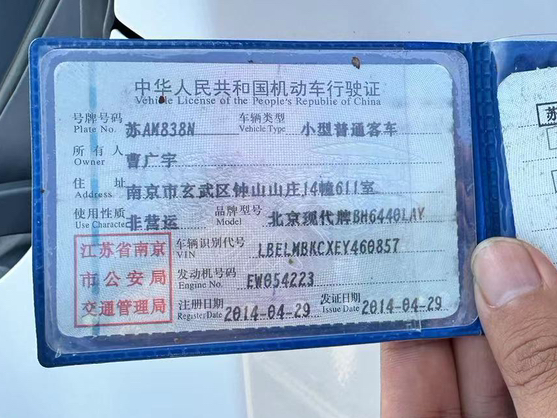 中华人民共和国机动车行驶证
Vehicle License of the People's Republic of China
号牌号码 苏AM838N 车辆类型 小型普通客车
Plate No. Vehicle Type
所有人 曹广宇
Owner
住址 南京市玄武区钟山山庄14幢611室
Address
使用性质 非营运 品牌型号 北京现代牌BH6440LAY
Use Character Model
江苏省南京 车辆识别代号 LBELMBKCXEY460857
VIN
市公安局 发动机号码 EW054223
Engine No.
交通管理局 注册日期 2014-04-29 发证日期 2014-04-29
Register Date Issue Date
苏